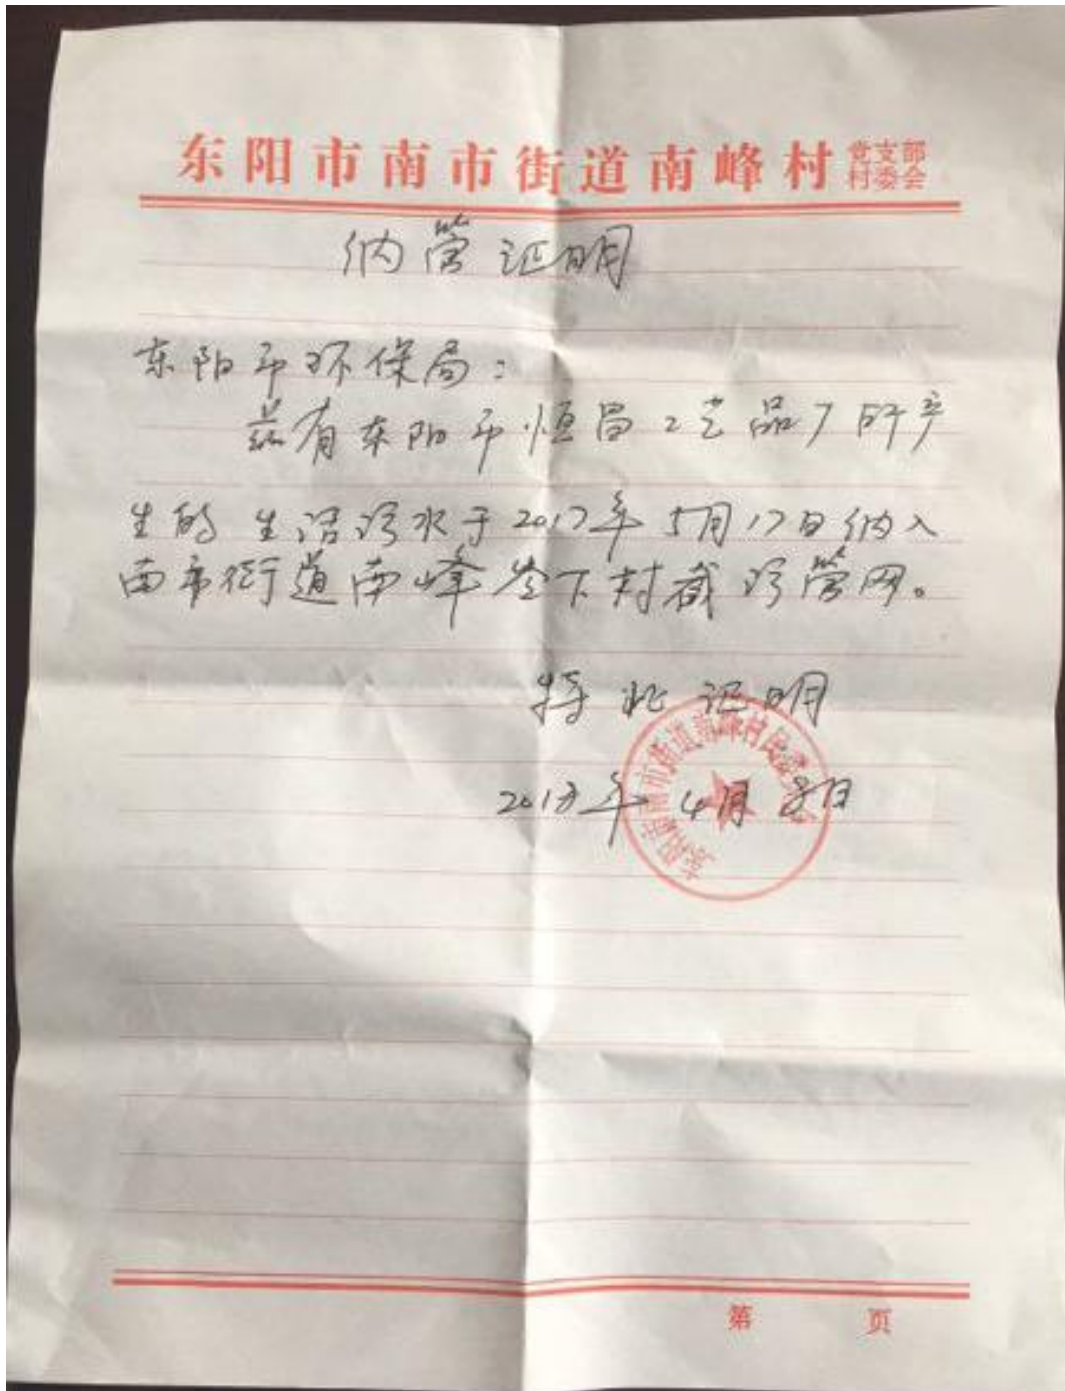 东阳市南市街道南峰村党支部村委会
纳管证明
东阳市环保局：
兹有东阳市恒昌工艺品厂所产
生的生活污水于2017年5月17日纳入
南市街道南峰岺下村截污管网。
特此证明
2018年4月8日
东阳市南市街道南峰村民委员会
第 页